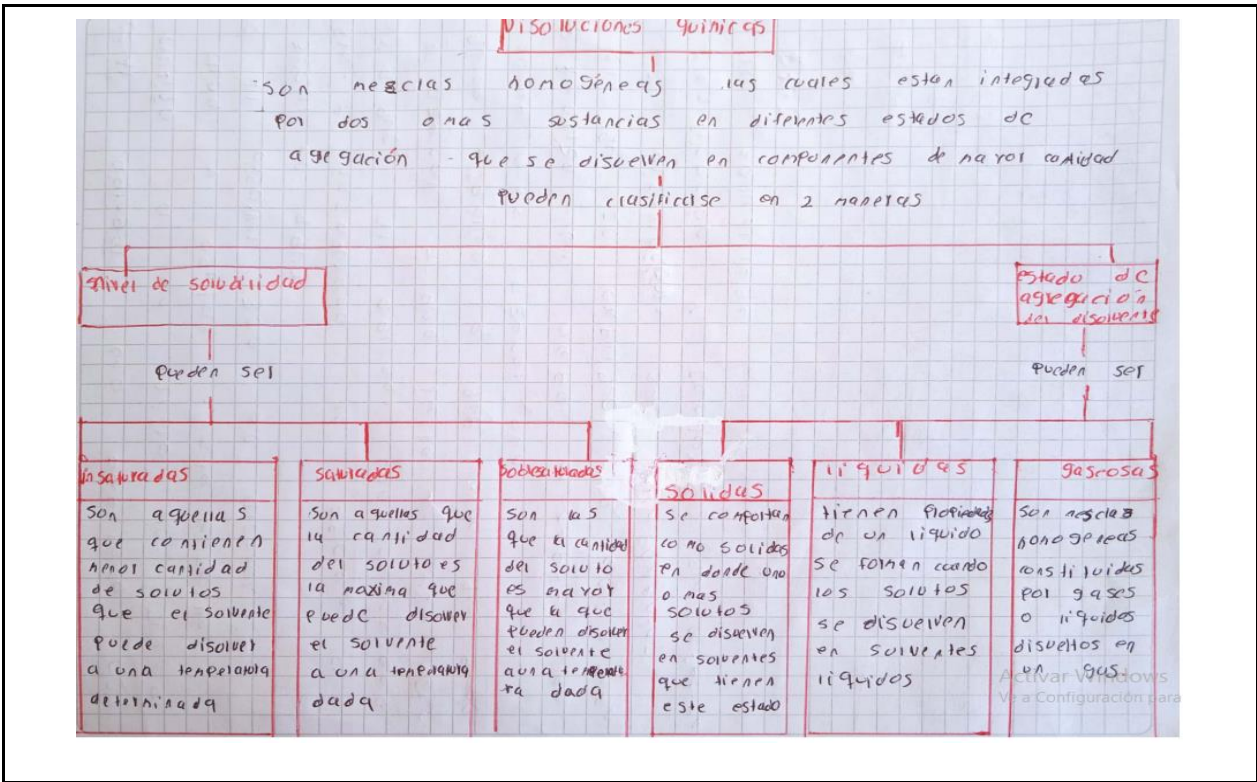 Disoluciones quinicas
son mezclas homogéneas las cuales estan integradas
por dos o mas sustancias en diferentes estados de
agregación que se disuelven en componentes de mayor cantidad
pueden clasificarse en 2 maneras
nivel de solubilidad
estado de
agregación
del disolvente
pueden ser
pueden ser
insaturadas
son aquellas
que contienen
menor cantidad
de solutos
que el solvente
puede disolver
a una temperatura
determinada
saturadas
son aquellas que
la cantidad
del soluto es
la maxima que
puede disolver
el solvente
a una temperatura
dada
sobresaturadas
son las
que la cantidad
del soluto
es mayor
que la que
pueden disolver
el solvente
a una temperatu
ra dada
solidas
se comportan
como solidos
en donde uno
o mas
solutos
se disuelven
en solventes
que tienen
este estado
liquidas
tienen propiedades
de un liquido
se forman cuando
los solutos
se disuelven
en solventes
liquidos
gaseosas
son mesclas
homogeneas
constituidas
por gases
o liquidos
disueltos en
un gas
Activar Windows
Ve a Configuración para